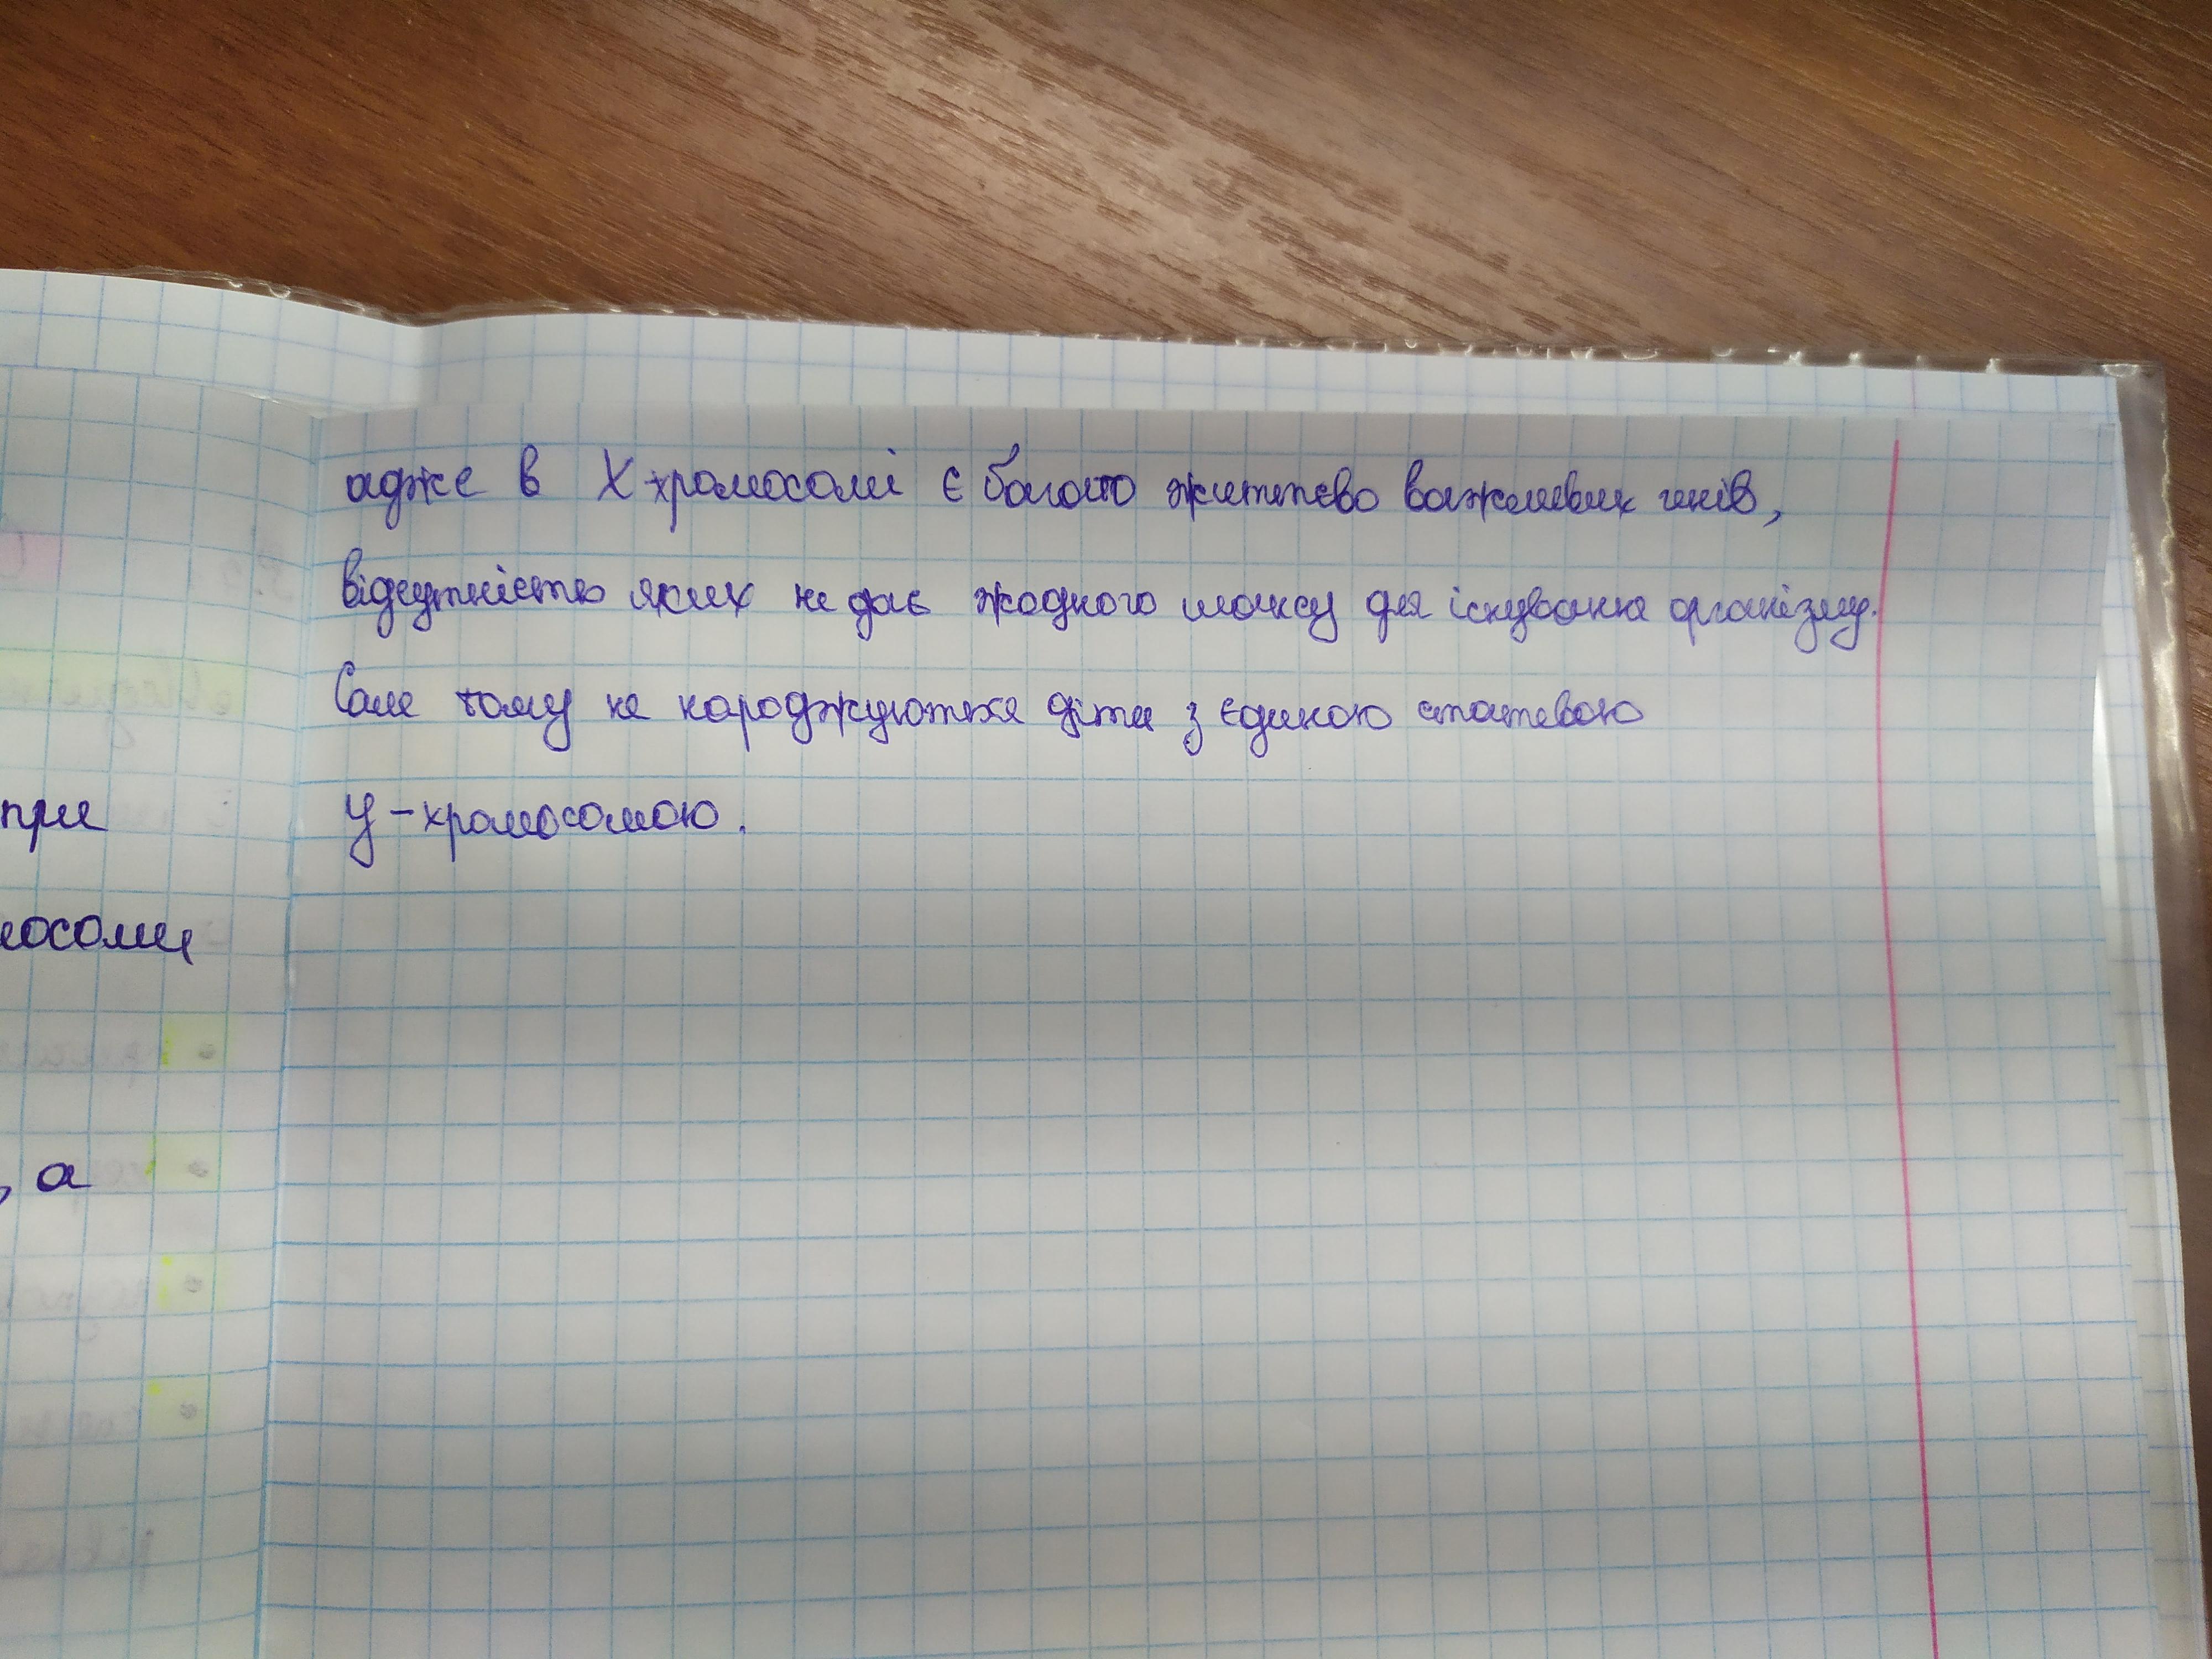 адже в X-хромосомі є багато життєво важливих генів,
відсутність яких не дає жодного шансу для існування організму.
Саме тому не народжуються діти з єдиною статевою
У-хромосомою.
при
мосоми
, а